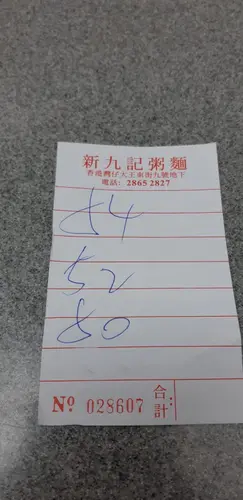 新九記粥麵
香港灣仔大王東街九號地下
電話: 2865 2827
54
52
50
Nº 028607 合計: